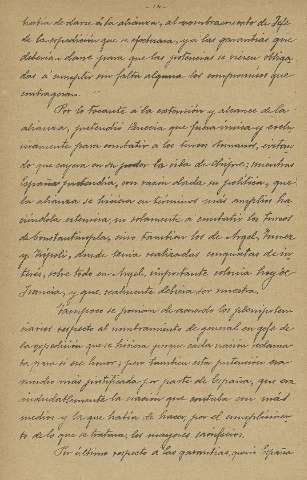 - 14 -
habia de darse á la alianza, al nombramiento de Jefe
de la espedición que se efectuara, y a las garantias que
deberian darse para que las potencias se vieran obliga-
das á cumplir sin falta alguna los compromisos que
contrageran.
Por lo tocante á la estensión y alcance de la
alianza, pretendia Venecia que fuera única y esclu-
sivamente para combatir a los turcos otomanos, evitan-
do que cayera en su poder la isla de Chipre; mientras
España pretendia, con razon dada su politica, que
la alianza se hiciera en términos más amplios ha-
ciendola estensiva no solamente a combatir los turcos
de Constantinopla, sino tambien los de Argel, Tunez
y Tripoli, donde tenia realizadas conquistas de in-
terés, sobre todo en Argel, importante colonia hoy de
Francia, y que realmente deberia ser nuestra.
Tampoco se ponian de acuerdo los plenipoten-
ciarios respecto al nombramiento de general en gefe de
la espedición que se hiciera porque cada nación reclama-
ba para si ese honor; pero tambien esta pretension era
mucho más justificada por parte de España, que era
indudablemente la nación que contaba con más
medios y la que habia de hacer, por el cumplimien-
to de lo que se tratara, los mayores sacrificios.
Por último respecto a las garantias, pedia España